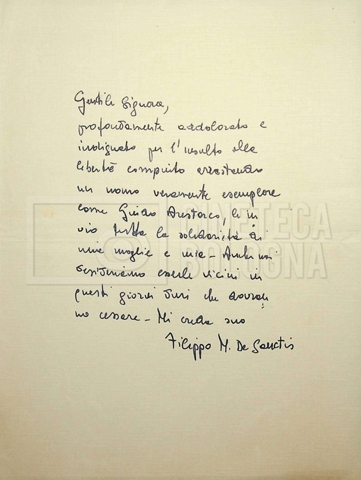 Gentile Signora,
profondamente addolorato e
indignato per l'insulto alla
libertà compiuto arrestando
un uomo veramente esemplare
come Guido Aristarco, le in
vio tutta la solidarietà di
mia moglie e mia - Ambedue
desideriamo esserle vicini in
questi giorni duri che dovran
no cessare - Mi creda suo
Filippo M. De Sanctis
CINETECA
BOLOGNA